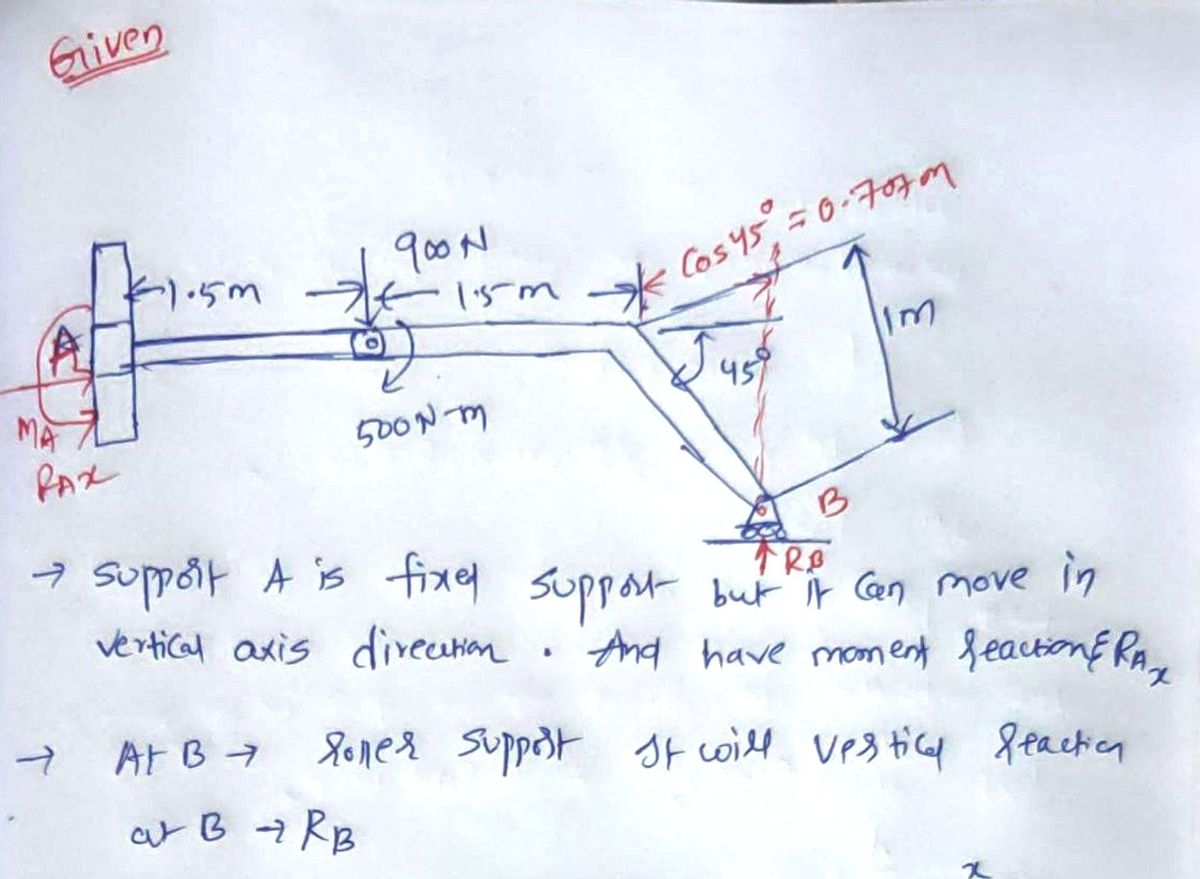 Given
cos 45° = 0.707m
900 N
1.5m
1.5m
1m
A
45°
500 N-m
MA
RAx
B
RB
→ support A is fixed support but it can move in
vertical axis direction . And have moment reaction & RAx
→ At B → roller support It will vertical reaction
at B → RB
x